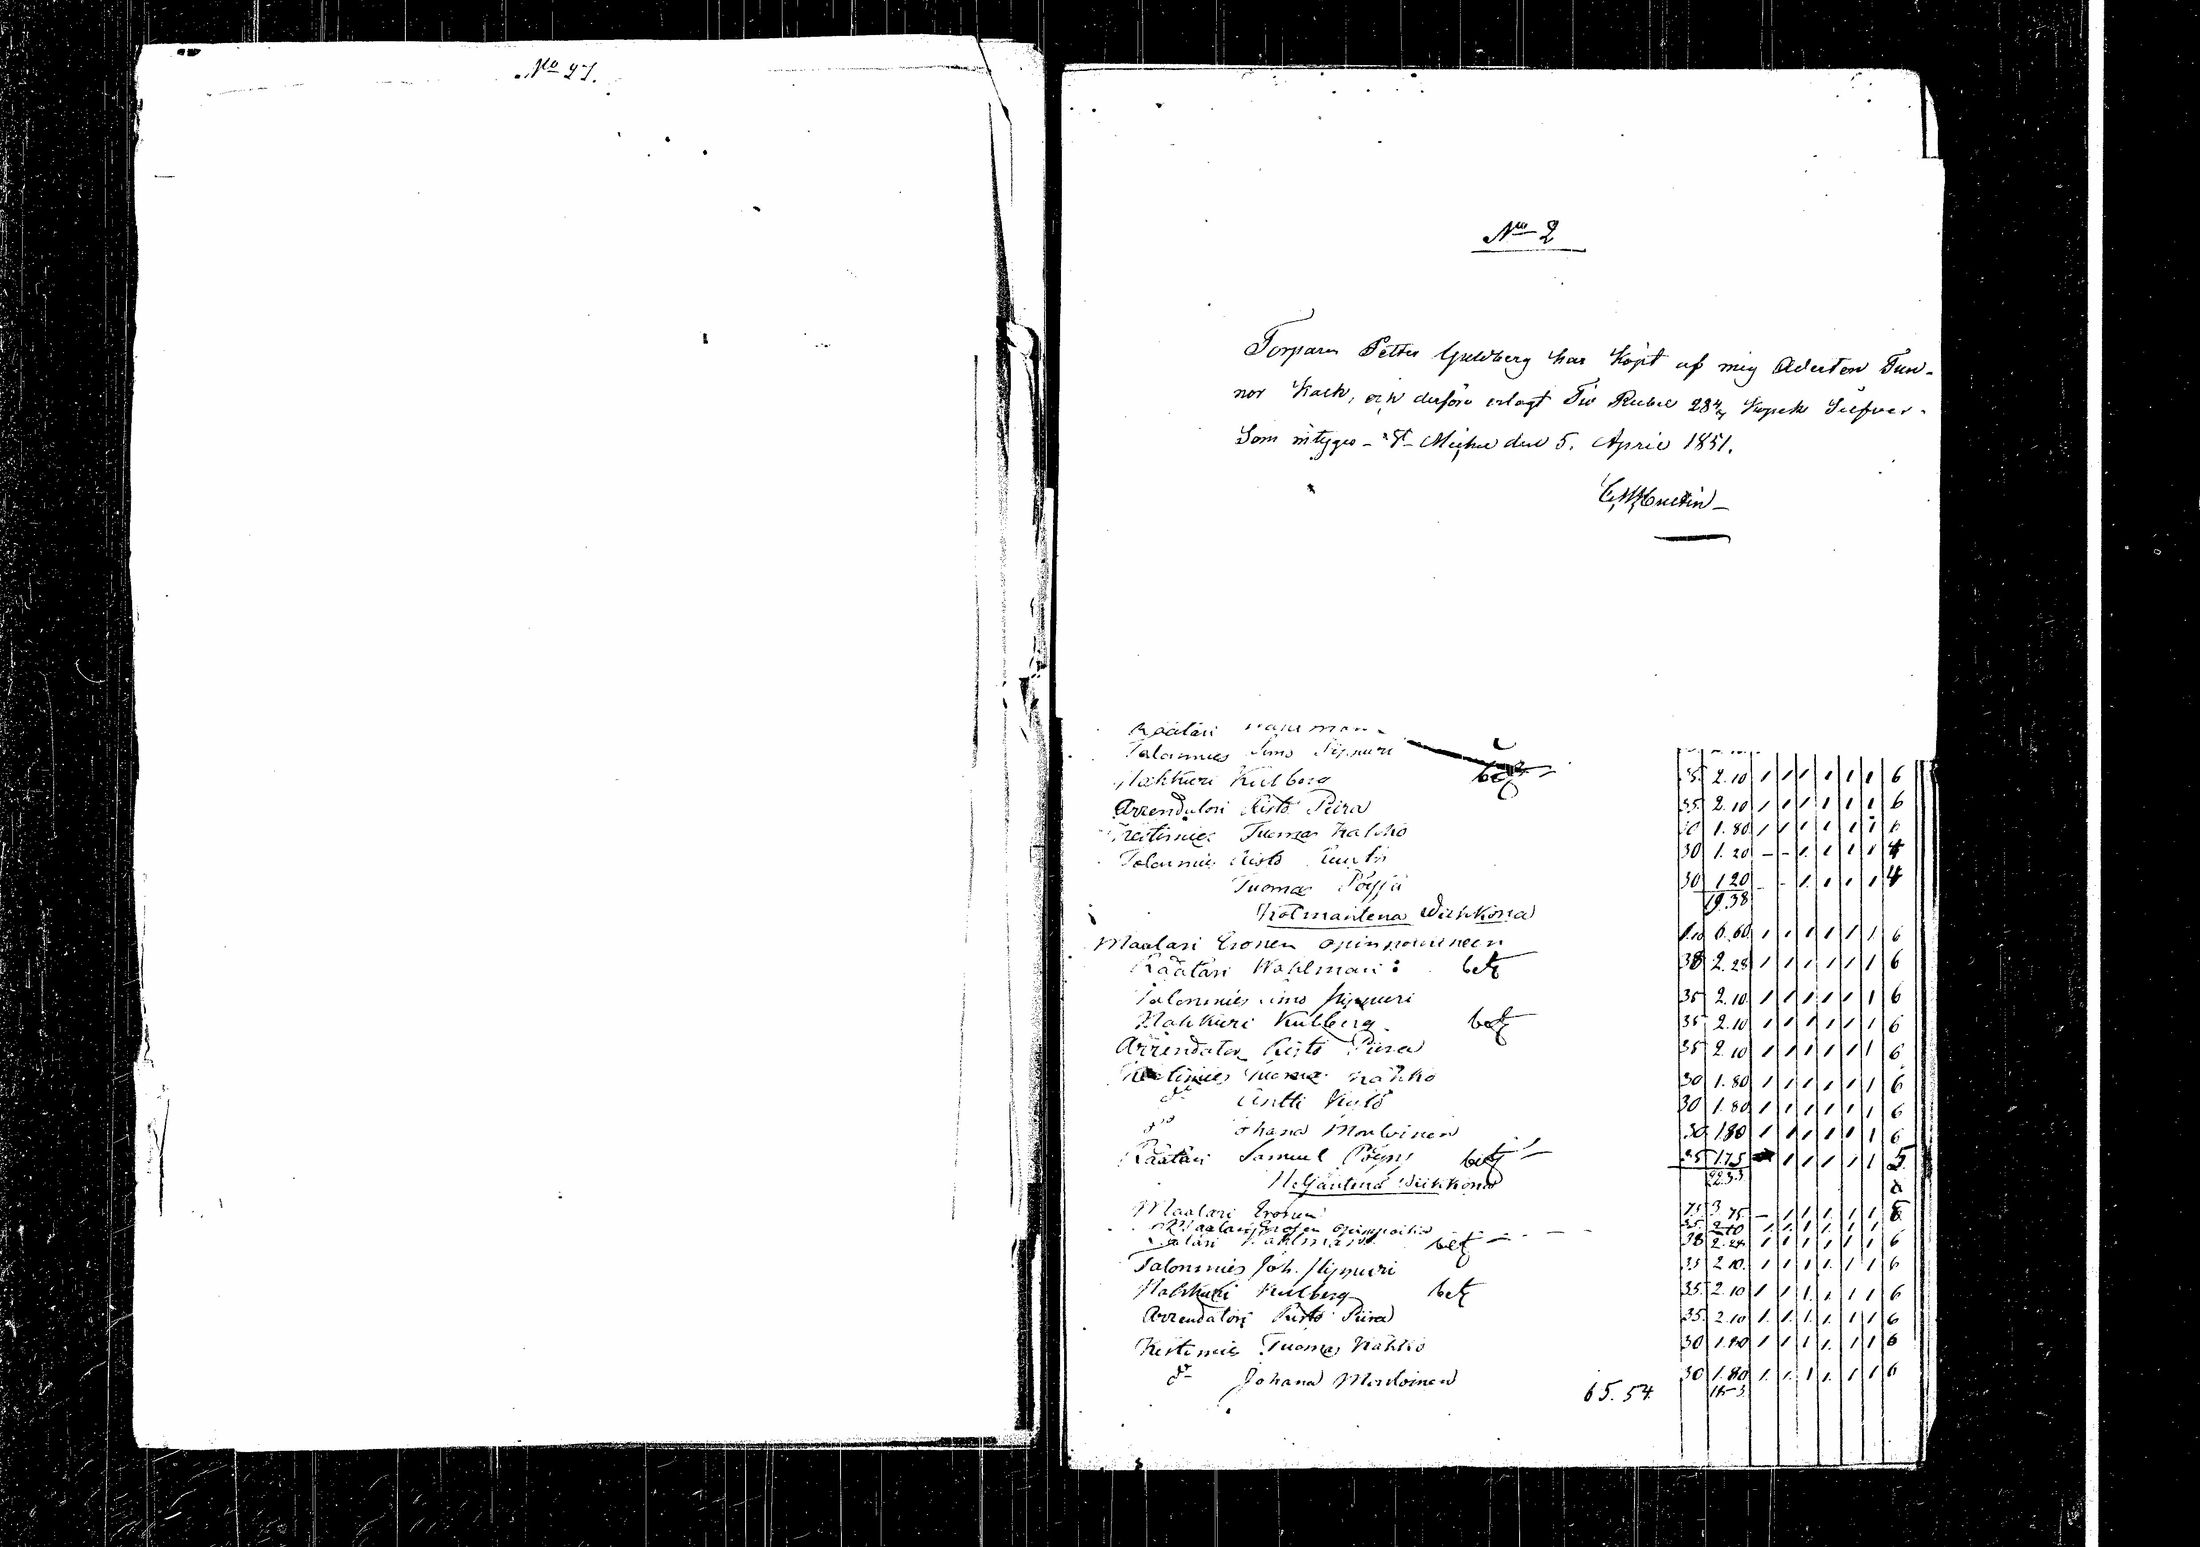 No 27.
No 2
Torparen Petter Guldberg har köpt af mig Aderton Tun-
nor Kalk, och derföre erlagt Tio Rubel 28 4/7 Kopek Silfver.
Som intygas - St Michel den 5. April 1851.
Räätäri
Talonmies Simo Sippuri
Nahkuri Kulberg bet 35 2.10 1 1 1 1 1 1 6
Arrendatori Risto Piira 35 2.10 1 1 1 1 1 1 6
Kestimies Tuomas Kahko 30 1.80 1 1 1 1 1 1 6
Talonmies Risto 30 1.20 - - 1 1 1 1 4
Tuomas Pöyjä 30 1.20 - - 1 1 1 1 4
19.38
Kolmantena Wiikkona
Maalari Eronen 1.10 6.60 1 1 1 1 1 1 6
Räätäri Wahlman: bet 38 2.28 1 1 1 1 1 1 6
Talonmies Simo Sippuri 35 2.10 1 1 1 1 1 1 6
Nahkuri Kulberg. bet 35 2.10 1 1 1 1 1 1 6
Arrendator Risto Piira 35 2.10 1 1 1 1 1 1 6
Kestimies Tuomas Kahko 30 1.80 1 1 1 1 1 1 6
do Antti 30 1.80 1 1 1 1 1 1 6
do Johana Monloinen 30 1.80 1 1 1 1 1 1 6
Räätäri Samuel bet 35 1.75 1 1 1 1 1 5
22.33
Neljäntenä Wiikkona
Maalari Eronen 75 3.75 - 1 1 1 1 1 5
Maalari Eronen 35 2.10 1 1 1 1 1 1
Räätäri Wahlman bet 38 2.28 1 1 1 1 1 1 6
Talonmies Joh. Sippuri 35 2.10 1 1 1 1 1 1 6
Nahkuri Kulberg bet 35 2.10 1 1 1 1 1 1 6
Arrendatori Risto Piira 35 2.10 1 1 1 1 1 1 6
Kestimies Tuomas Kahko 30 1.80 1 1 1 1 1 1 6
do Johana Monloinen 30 1.80 1 1 1 1 1 1 6
65.54